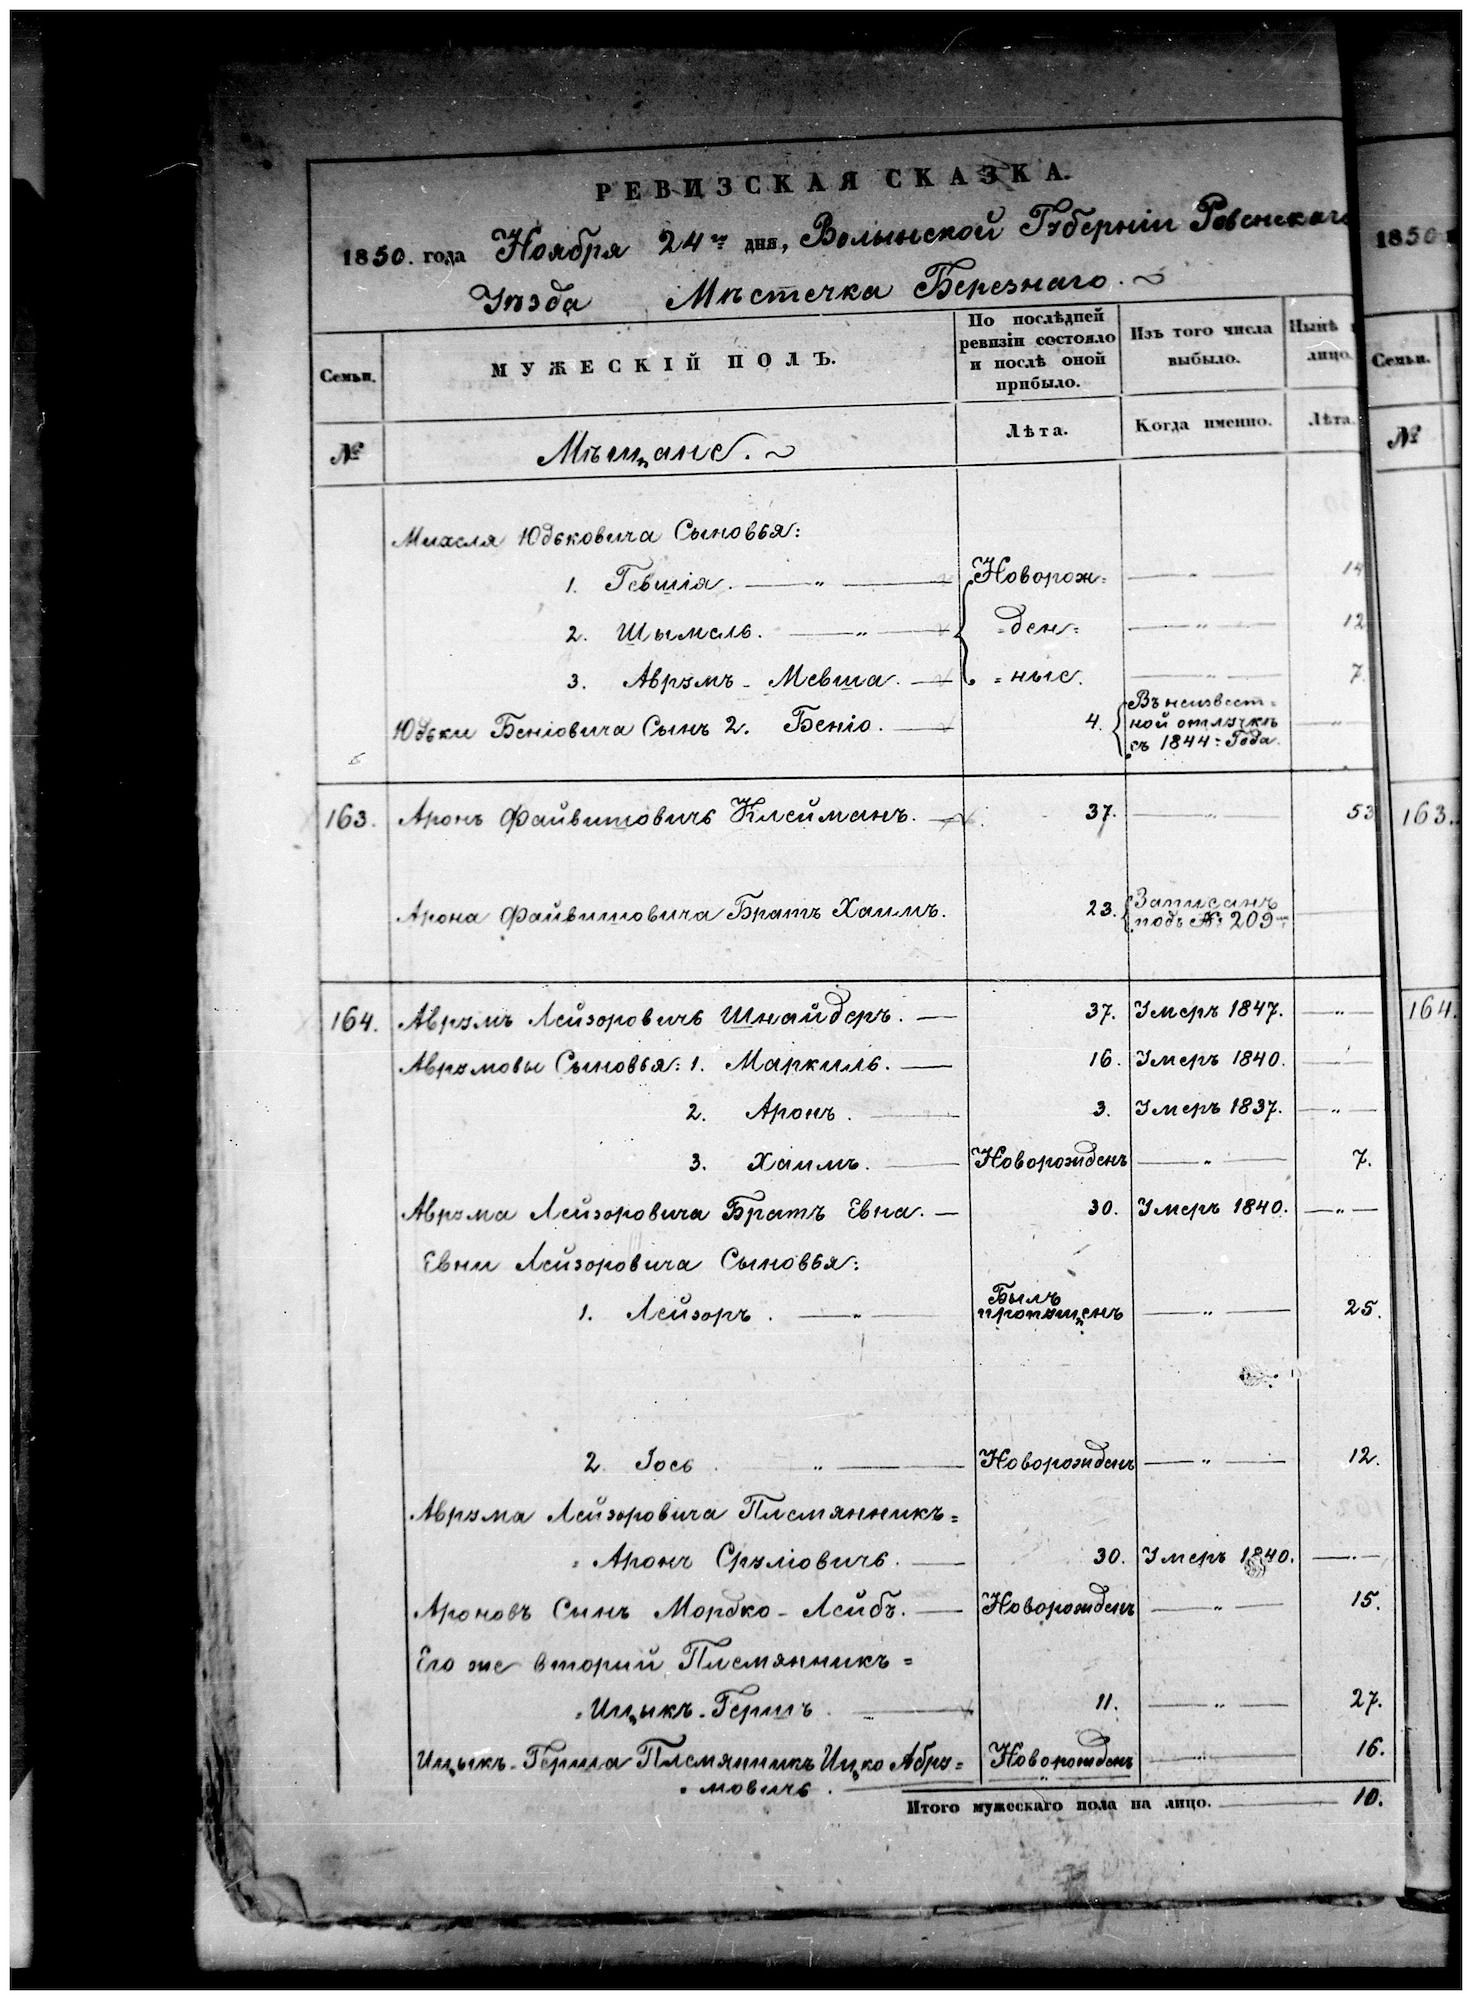 РЕВИЗСКАЯ СКАЗКА.
1850. года Ноября 24го дня, Волынской Губерніи Ровенскаго
Уѣзда Мѣстечка Березнаго.
Семьи.
МУЖЕСКІЙ ПОЛЪ.
По послѣдней
ревизіи состояло
и послѣ оной
прибыло.
Изъ того числа
выбыло.
Нынѣ
лицо.
№
Мѣщане.
Лѣта.
Когда именно.
Лѣта.
Михеля Юдьковича Сыновья:
1. Гевшія. — „ — Новорож= — „ — 14
2. Шымель. — „ — =ден= — „ — 12
3. Аврумъ - Мевша. — =ные. — „ — 7.
Юдьки Беніовича Сынъ 2. Беніо. — 4. Въ неизвест=
ной отлучкѣ — „ —
съ 1844= Года.
163. Аронъ Файвишовичь Клейманъ. — 37. — „ — 53
Арона Файвишовича Братъ Хаимъ. 23. Записанъ
подъ №: 209 —
164. Аврумъ Лейзоровичь Шнайдеръ. — 37. Умеръ 1847. — „ —
Аврумовы Сыновья: 1. Маркиль. — 16. Умеръ 1840. — „ —
2. Аронъ. — 3. Умеръ 1837. — „ —
3. Хаимъ. — Новорожденъ — „ — 7.
Аврума Лейзоровича Братъ Евна. — 30. Умеръ 1840. — „ —
Евни Лейзоровича Сыновья:
1. Лейзоръ. — „ — Былъ
пропущенъ — „ — 25.
2. Іось. „ — Новорожденъ — „ — 12.
Аврума Лейзоровича Племянникъ=
=Аронъ Сруліовичь. — 30. Умеръ 1840. — „ —
Ароновъ Сынъ Мордко - Лейбъ. — Новорожденъ — „ — 15.
Его же вторий Племянникъ=
=Ицыкъ - Гершъ. — „ — 11. — „ — 27.
Ицыкъ - Герша Племянникъ Ицко Абру= Новорожденъ — „ — 16.
=мовичь.
Итого мужескаго пола на лицо. — 10.
1850
Семьи.
№
163.
164.